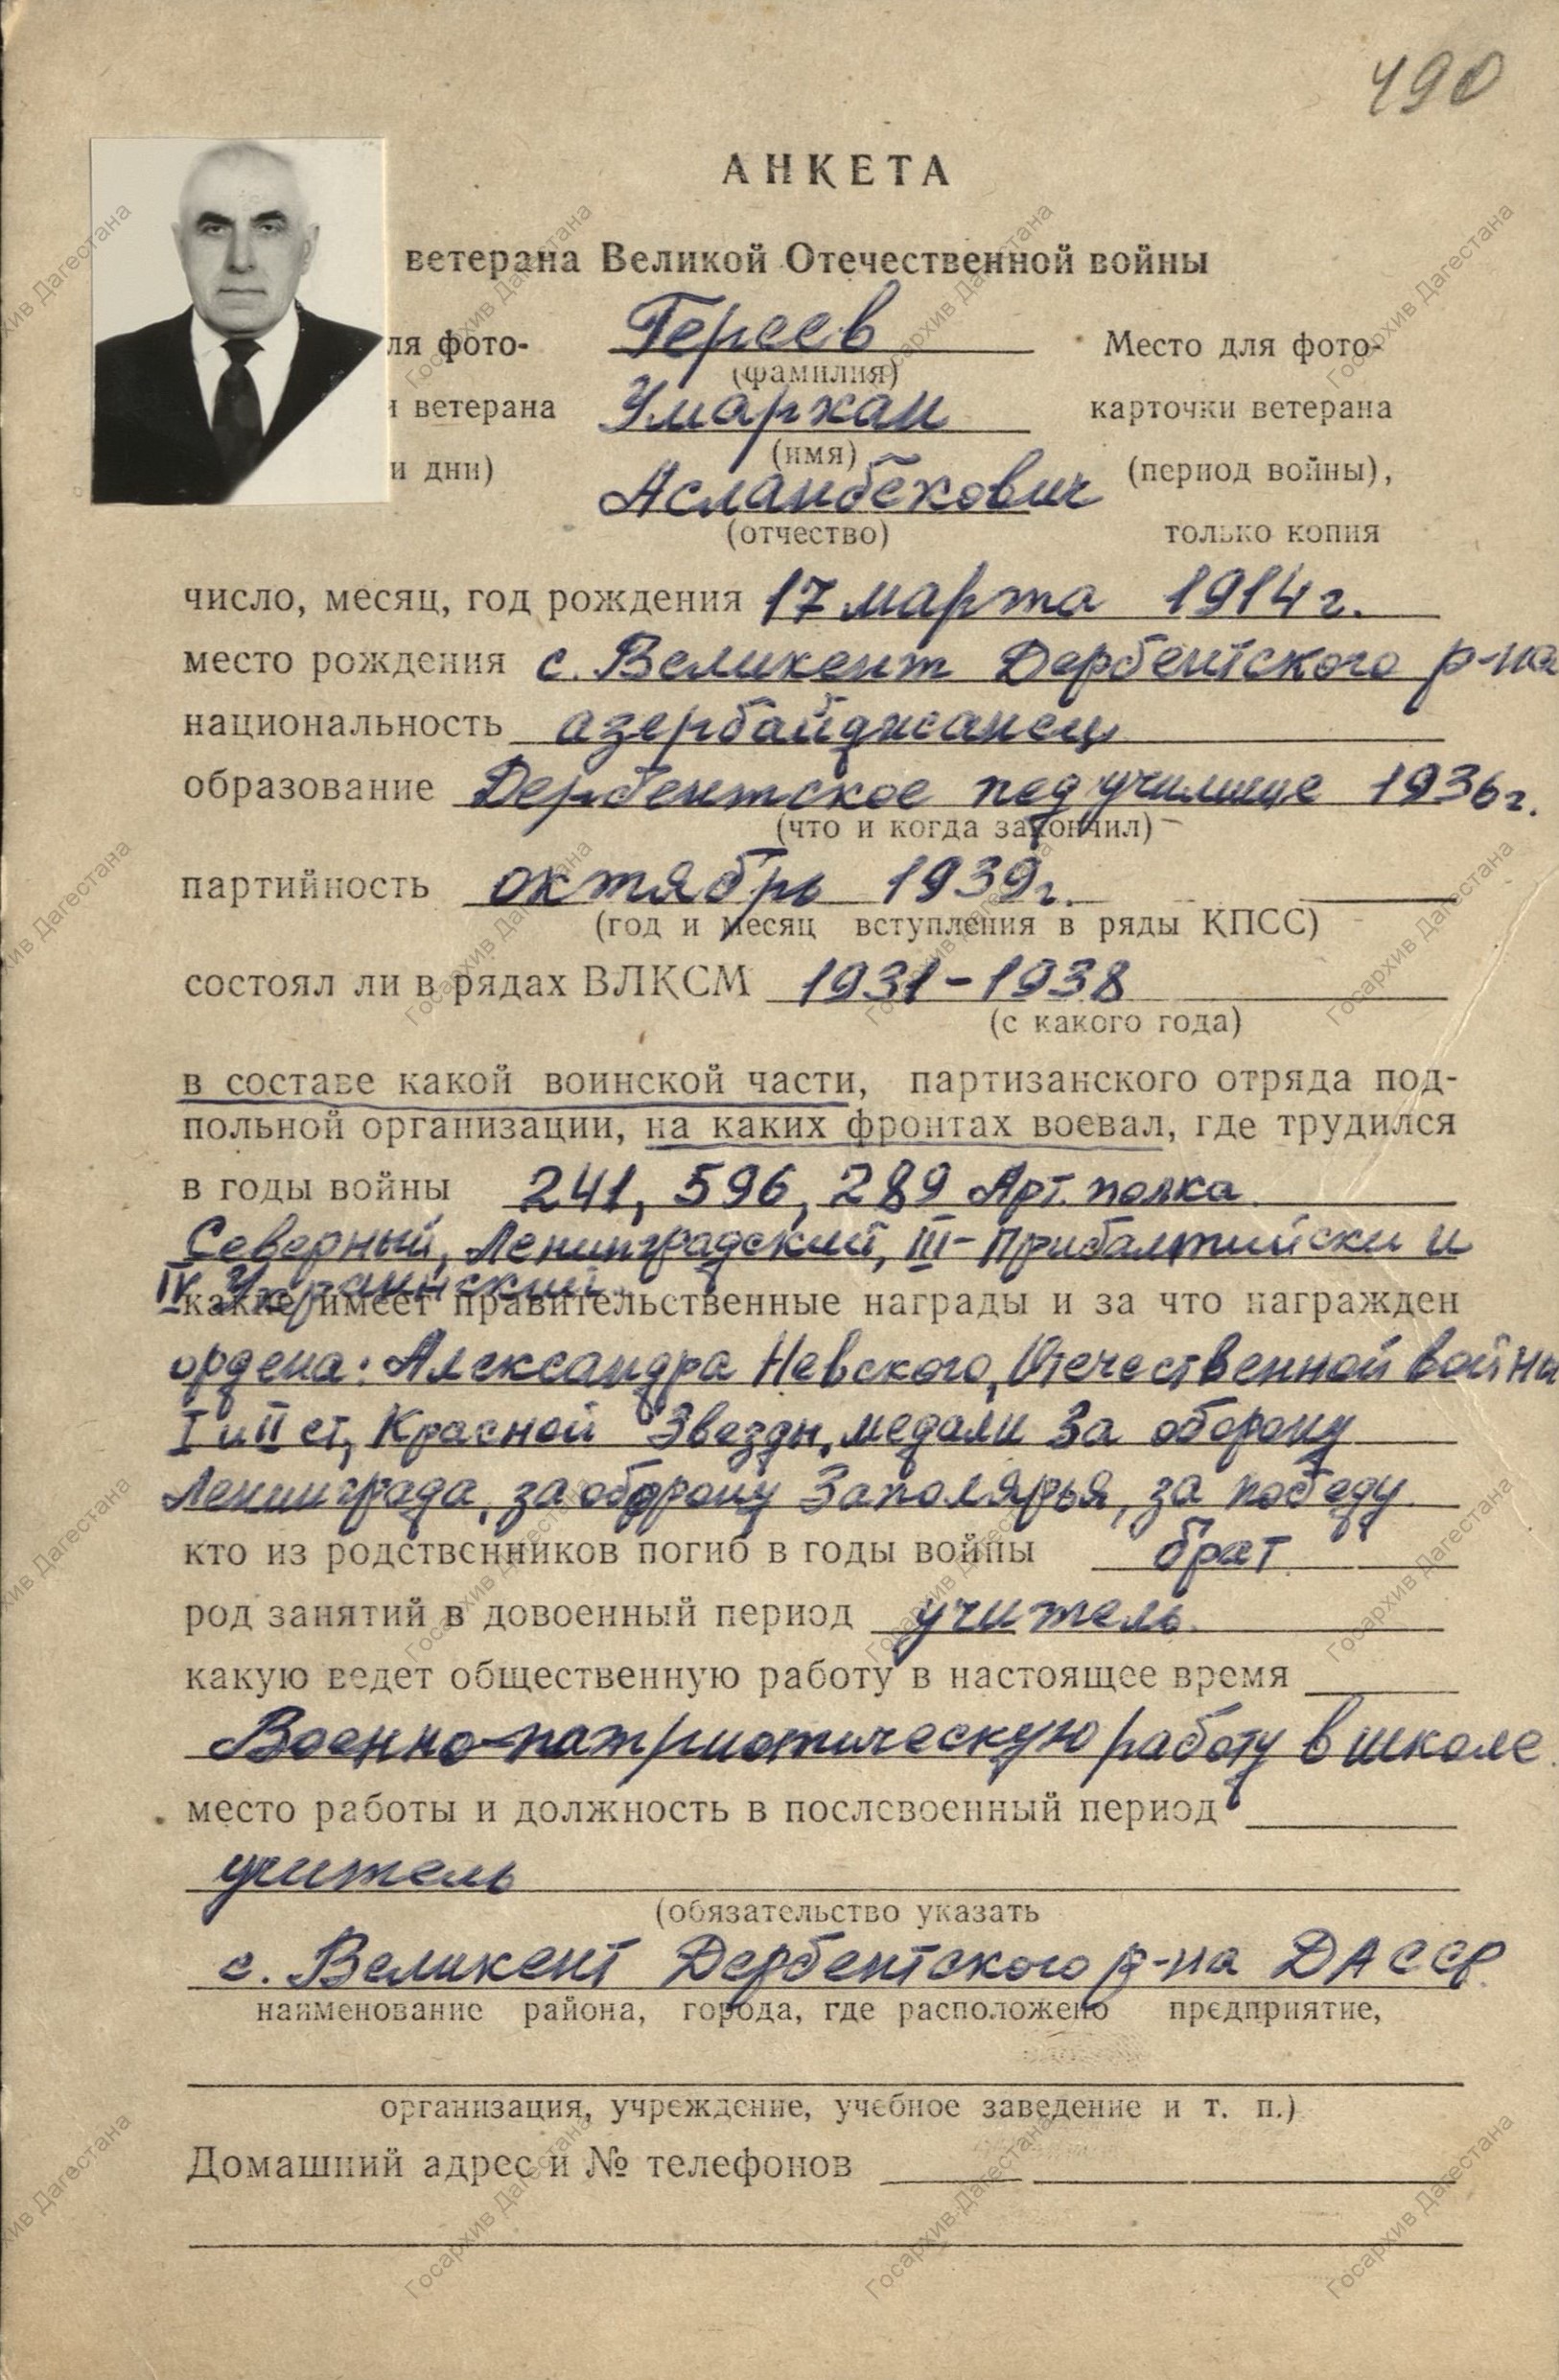 490
АНКЕТА
ветерана Великой Отечественной войны
ля фото-
Гереев
Место для фото-
(фамилия)
ветерана
Умархан
карточки ветерана
(имя)
и дни)
Асланбекович
(период войны),
(отчество)
только копия
число, месяц, год рождения 17 марта 1914 г.
место рождения с. Великент Дербентского р-на
национальность азербайджанец
образование Дербентское пед училище 1936 г.
(что и когда закончил)
партийность октябрь 1939 г.
(год и месяц вступления в ряды КПСС)
состоял ли в рядах ВЛКСМ 1931-1938
(с какого года)
в составе какой воинской части, партизанского отряда под-
польной организации, на каких фронтах воевал, где трудился
в годы войны 241, 596, 289 Арт. полка
Северный, Ленинградский, III- Прибалтийски и
IV Украинский.
какие имеет правительственные награды и за что награжден
ордена: Александра Невского, Отечественной войны
I и II ст, Красной Звезды, медали За оборону
Ленинграда, за оборону Заполярья, за победу.
кто из родственников погиб в годы войны брат
род занятий в довоенный период учитель
какую ведет общественную работу в настоящее время
Военно-патриотическую работу в школе.
место работы и должность в послевоенный период
учитель
(обязательство указать
с. Великент Дербентского р-на ДАССР.
наименование района, города, где расположено предприятие,
организация, учреждение, учебное заведение и т. п.)
Домашний адрес и № телефонов
Госархив Дагестана